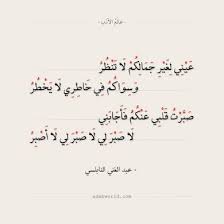 عالم الأدب
عَيْنِي لِغَيْرِ جَمَالِكُمْ لَا تَنْظُرُ
وَسِوَاكُمُ فِي خَاطِرِي لَا يَخْطُرُ
صَبَّرْتُ قَلْبِي عَنْكُمُ فَأَجَابَنِي
لَا صَبْرَ لِي لَا صَبْرَ لِي لَا أَصْبِرُ
- عبد الغني النابلسي
adabworld.com